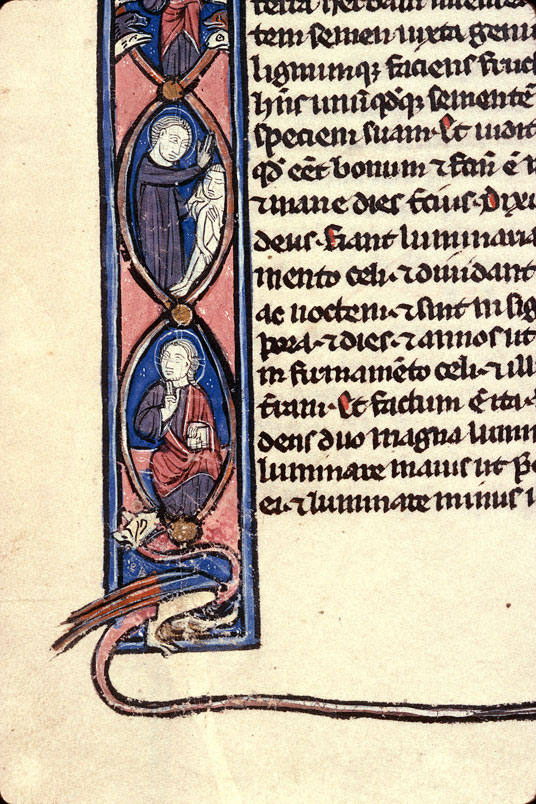 terra herbam uirente
tem semen iuxta genu
lignumqȝ faciens fruc
hn̄s unūqd̄qȝ sementē
speciem suam. Et uidit
qd̄ eēt bonum ⁊ fcm̄ ē u
⁊ mane dies t̄cius. Dixi
deus. fiant luminaria
mento celi. ⁊ diuidant
ac noctem. ⁊ sint in sig
pora. ⁊ dies. ⁊ annos ut
in firmamēto celi. ⁊ ill
t̄ram. Et factum ē ita.
deus duo magna lumi
luminare maius ut p̄e
ei. ⁊ luminare minus u